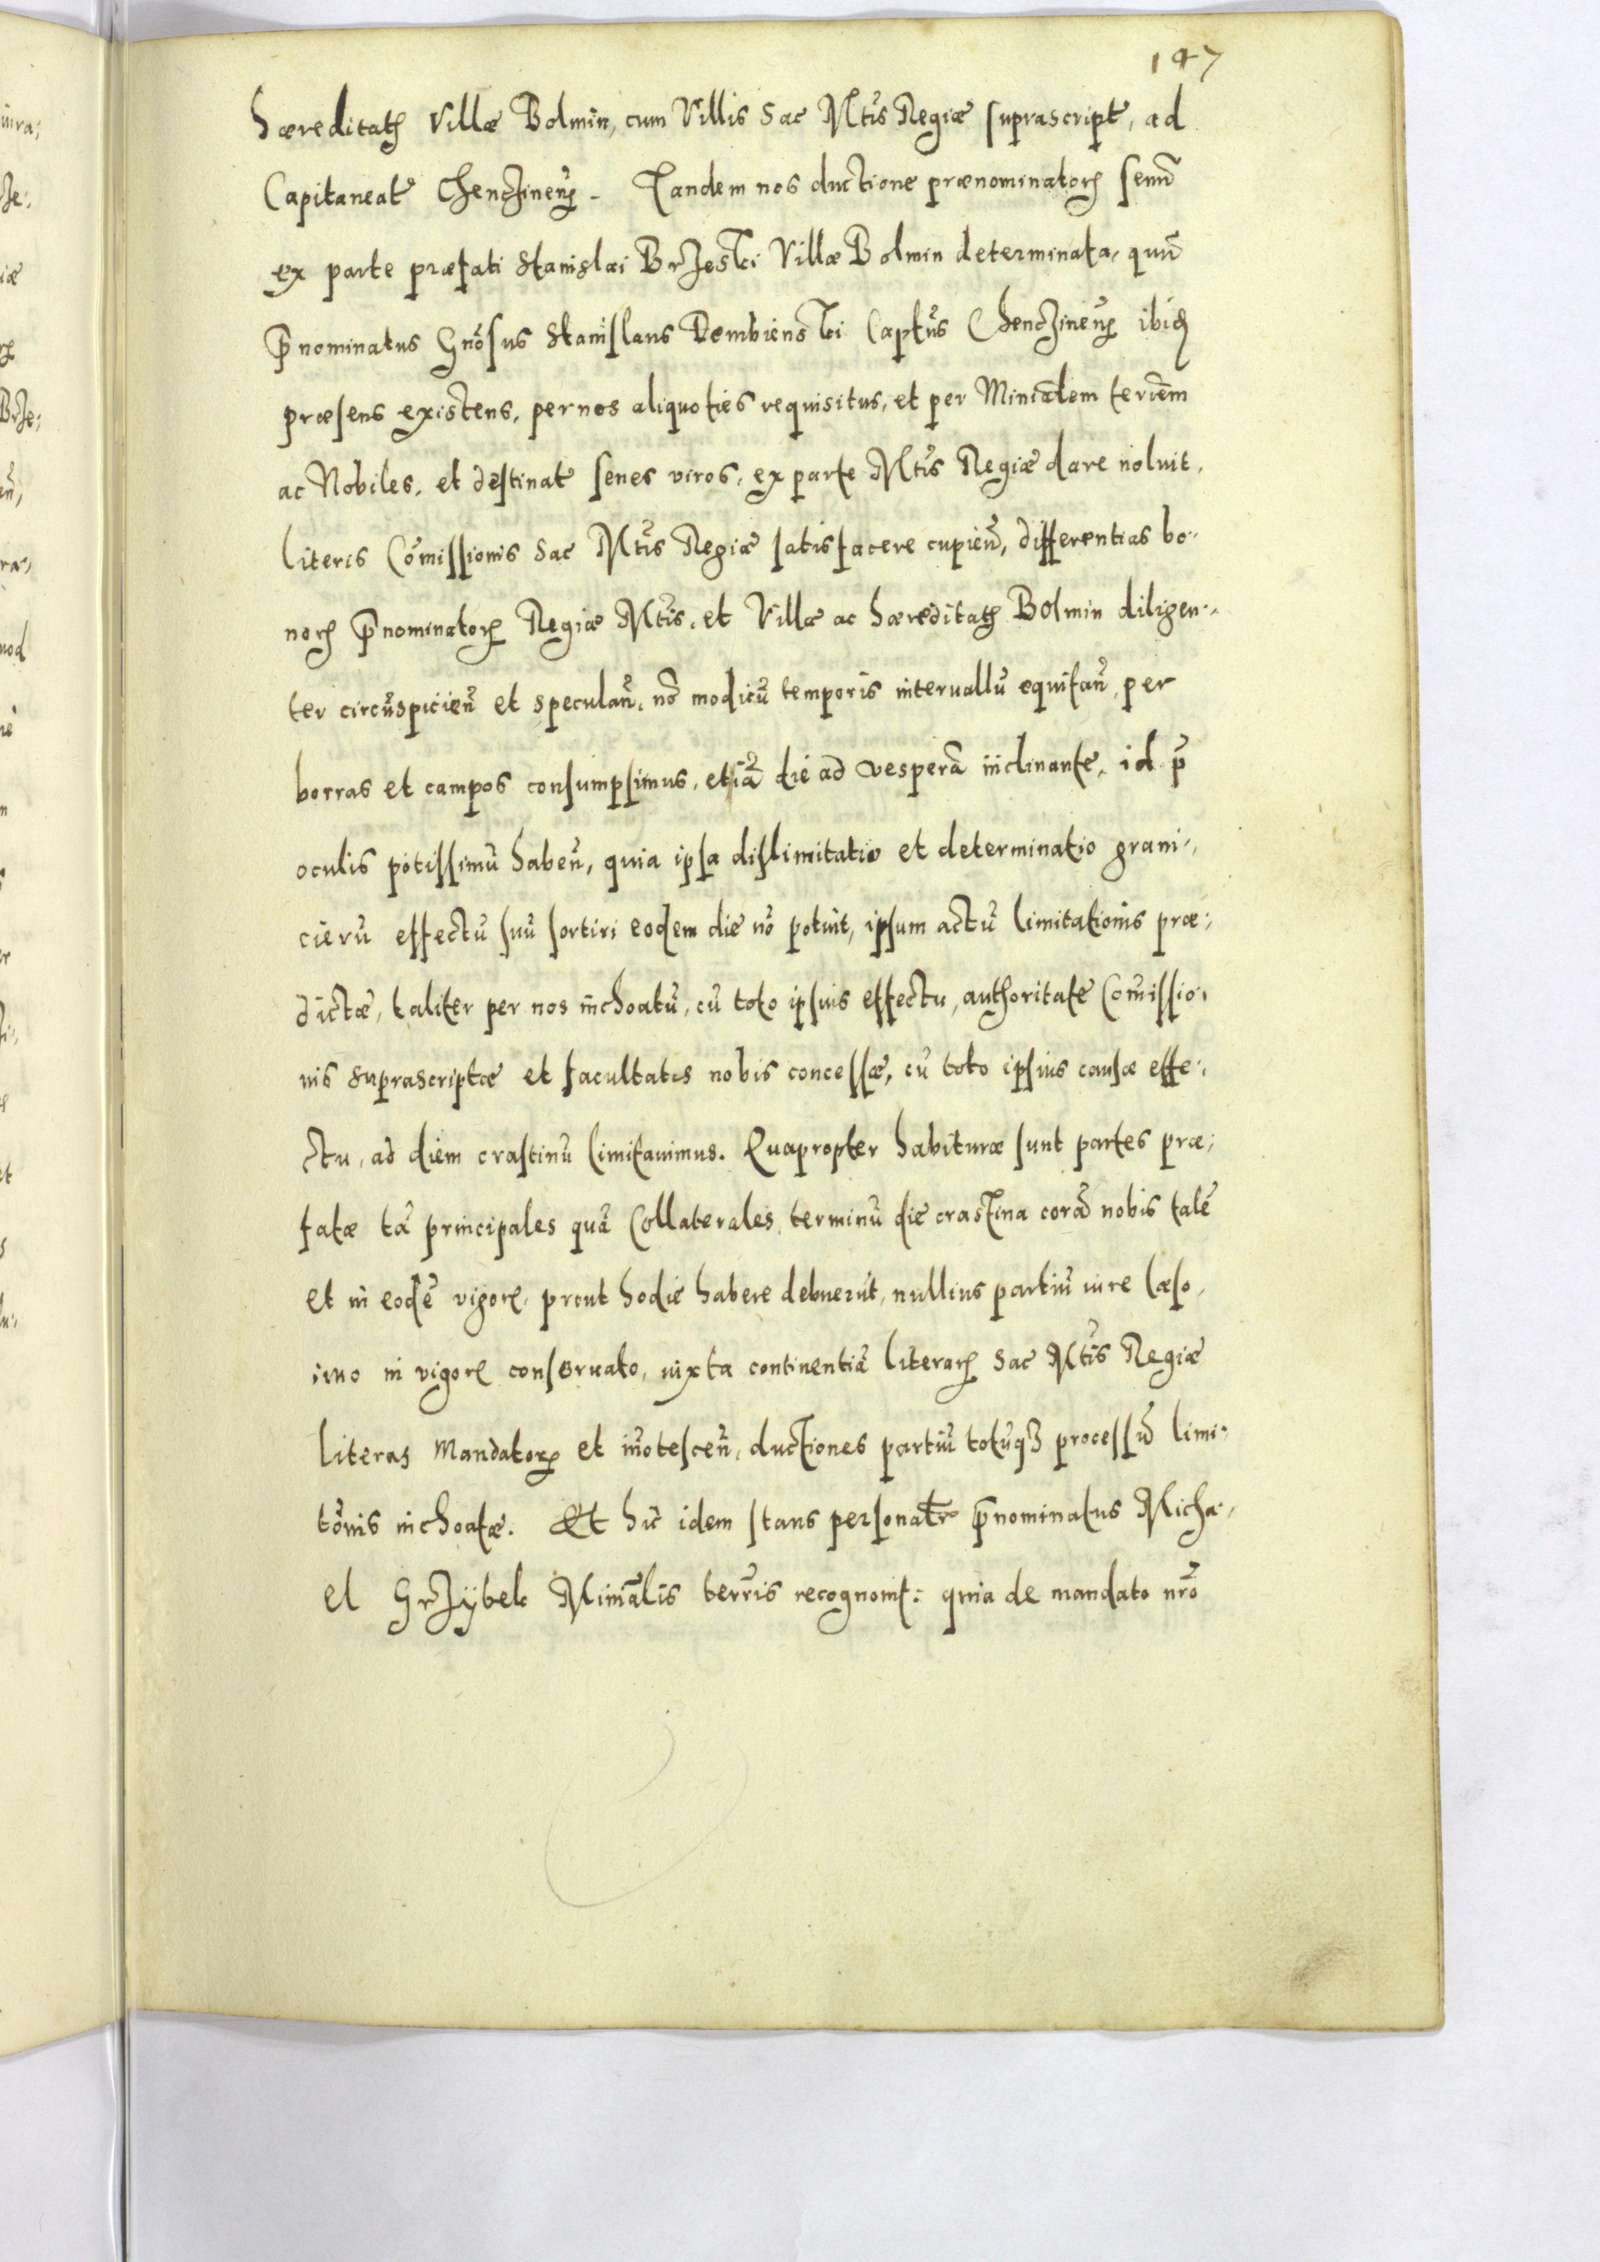 147
hæreditatꝭ Villæ Bolmin, cum Villis Sac Mtis Regiæ suprascript, ad
Capitaneat Chenczinenꝭ. Tandem nos ductione prænominatorꝭ senũ
ex parte præfati Stanislai Brzeski Villæ Bolmin determinata, quũ
p̃nominatus Gnõsus Stanislaus Dembienski Capt̃us Chenczinenꝭ ibidꝭ
præsens existens, per nos aliquoties requisitus, et per Miniãlem terr̃em
ac Nobiles, et destinat senes viros, ex parte Mtis Regiæ dare noluit,
literis Cõmissionis Sac Mtis Regiæ satisfacere cupieñ, differentias bo-
norꝭ p̃nominatorꝭ Regiæ Mtis, et Villæ ac hæreditatꝭ Bolmin diligen-
ter circũspicieñ et speculañ, nõ modicũ temporis interuallũ equitañ, per
borras et campos consumpsimus, etiã die ad vesperã inclinante, id p̃
oculis potissimũ habeñ, quia ipsa dislimitatio et determinatio grani-
cierũ effectũ suũ sortiri eodem die nõ potuit, ipsum actũ limitationis præ-
dictæ, taliter per nos inchoatũ, cũ toto ipsuis effectu, authoritate Com̃issio-
nis suprascriptæ et facultatis nobis concessæ, cũ toto ipsius causæ effe-
ctu, ad diem crastinũ limitauimus. Quapropter habituræ sunt partes præ-
fatæ tã principales quã Collaterales, terminũ die crastina corã nobis talẽ
et in eodẽ vigorꝭ, prout hodie habere debuerũt, nullius partiũ iure læso,
imo in vigorꝭ conseruato, iuxta continentiã literarꝭ Sac Mtis Regiæ
literas Mandatorꝭ et iñotesceñ, ductiones partiũ totũqꝫ processũ limi-
tõnis inchoatæ. Et hic idem stans personatr p̃nominatus Micha-
el Grzÿbek Miniãlis terr̃is recognouit: quia de mandato nr̃o